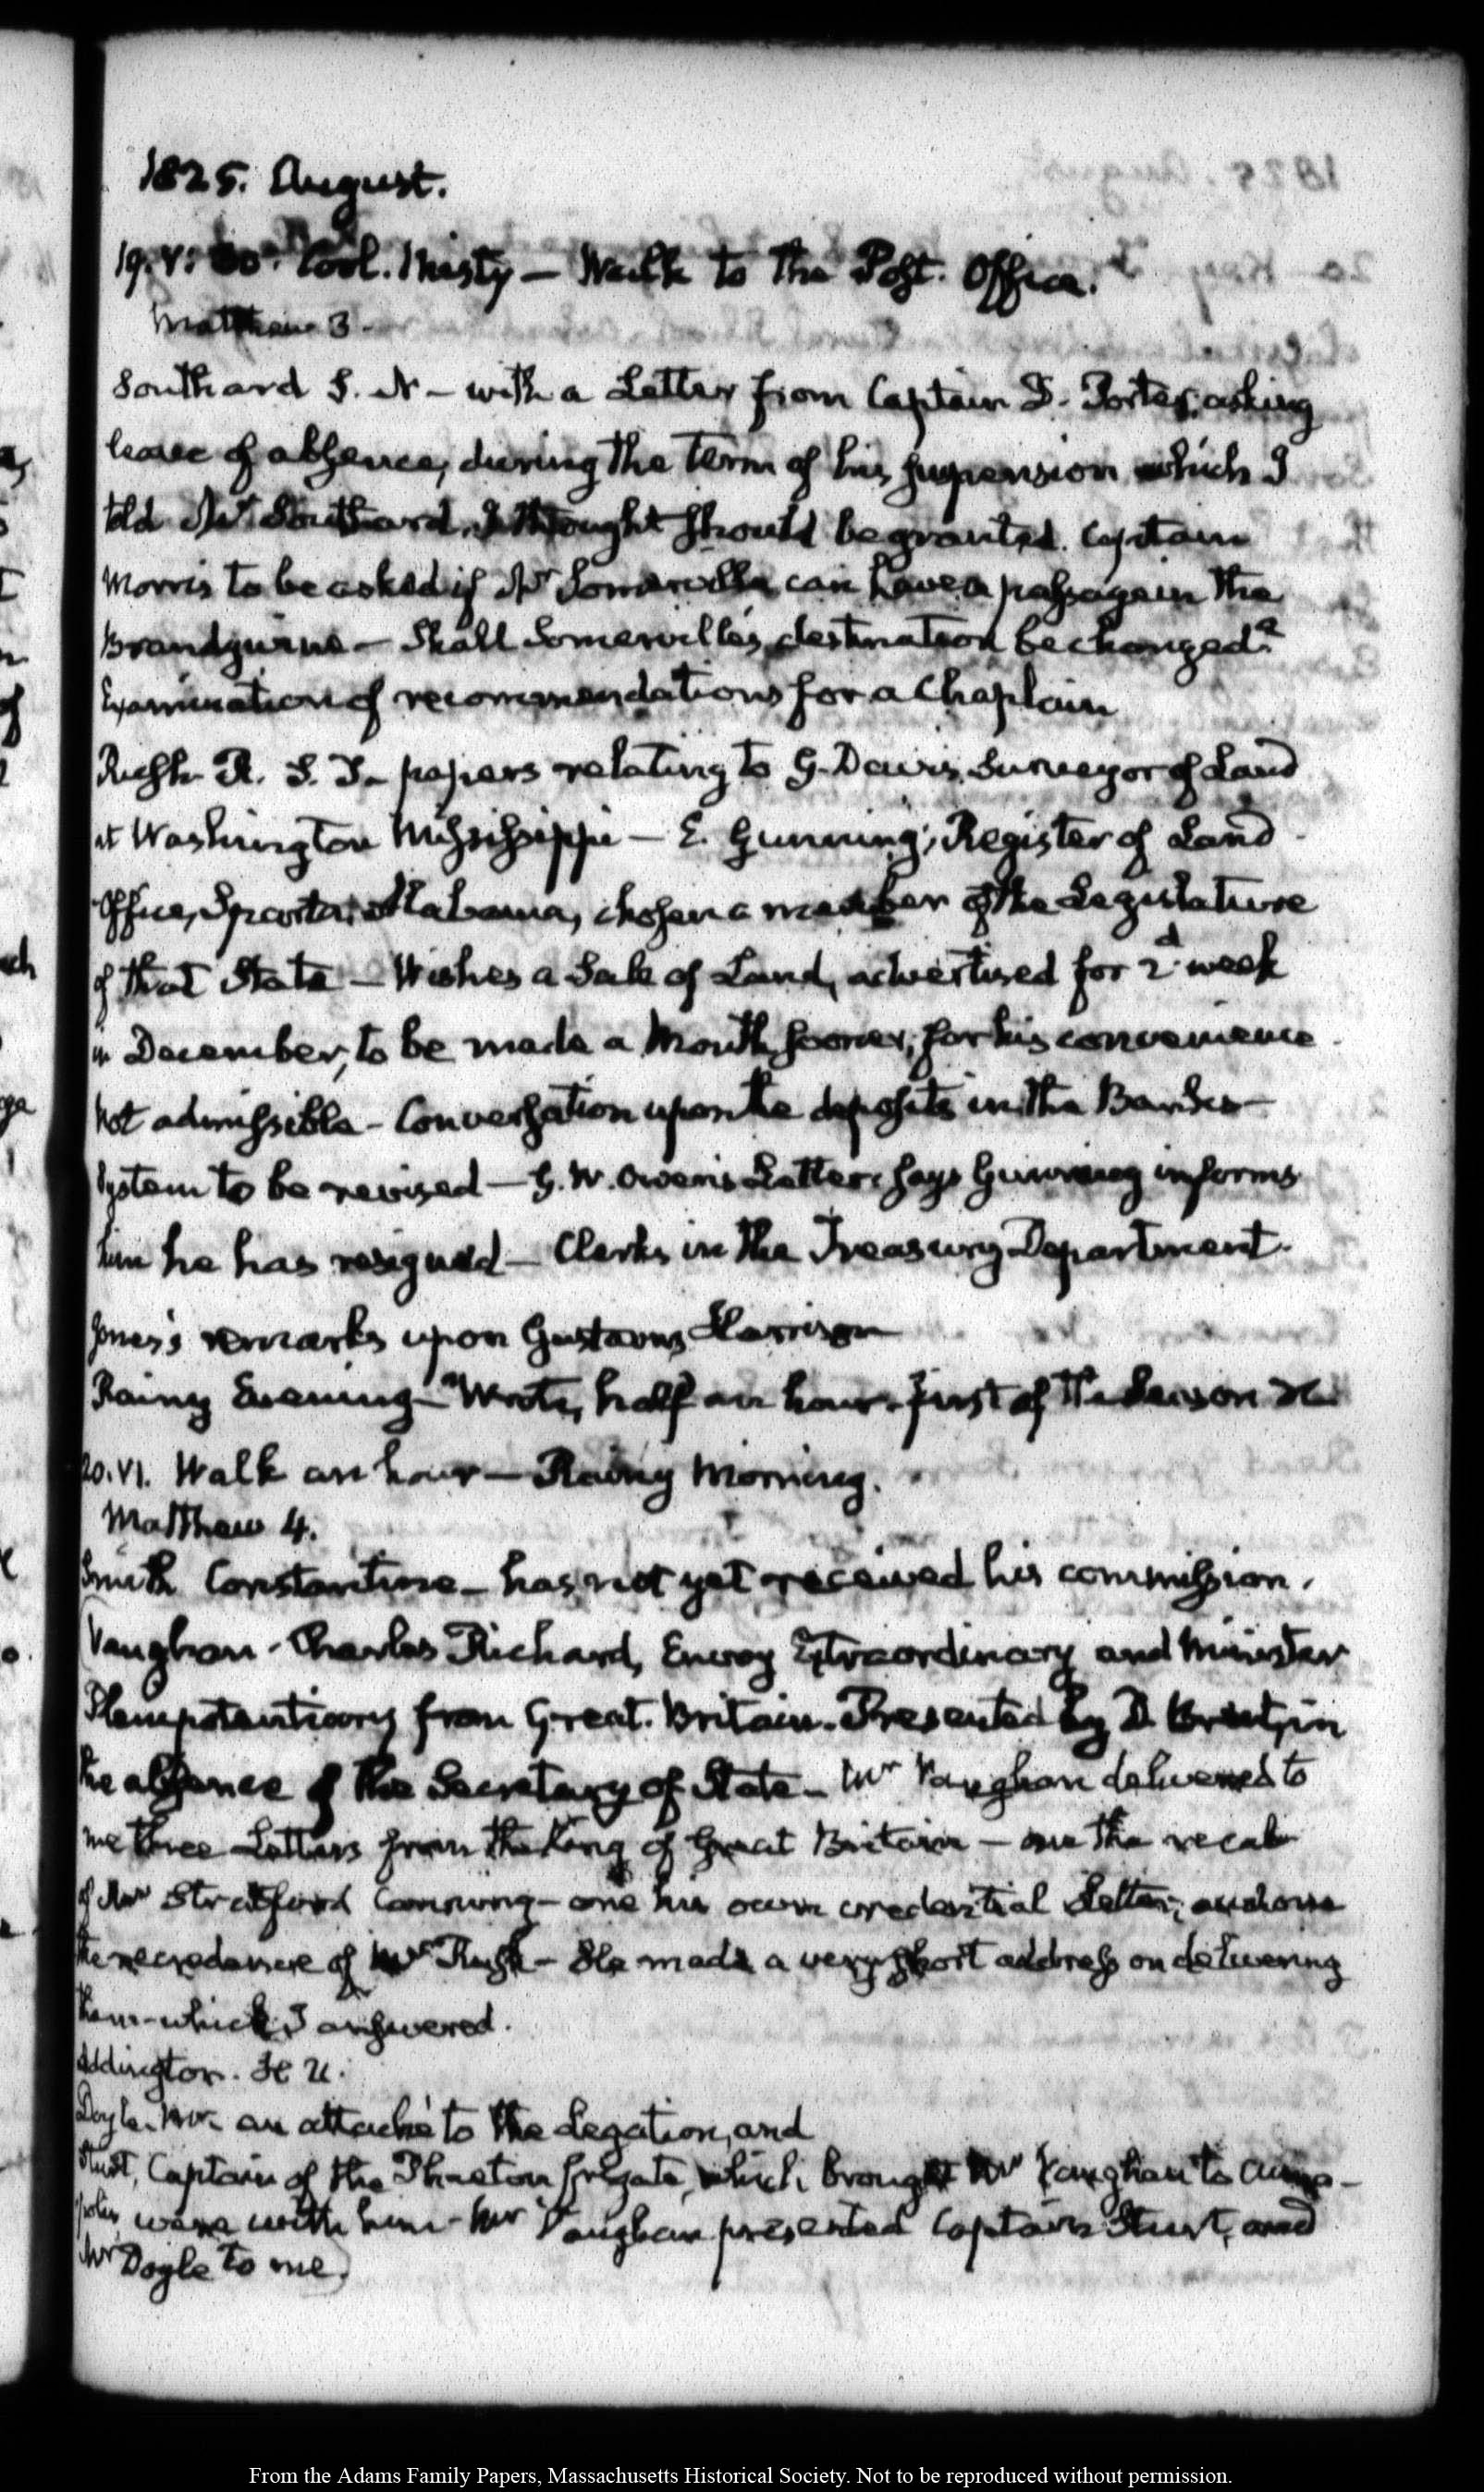 1825. August.
19. V: Cool. Misty — Walk to the Post. Office.
Matthew 3.
Southard S. N — with a Letter from Captain D. Porter, asking
leave of absence, during the term of his suspension which I
told Mr Southard, I thought should be granted. Captain
Morris to be asked if Mr Somerville can have a passage in the
Brandywine — Shall Somerville's destination be changed?
Examination of recommendations for a Chaplain
Rush R. S. T— papers relating to G. Davis, Surveyor of Land
at Washington Mississippi — E. Gunning, Register of Land
Office, Sparta, Alabama, chosen a member of the Legislature
of that State — Wishes a Sale of Land, advertised for 2d week
in December, to be made a Month sooner, for his convenience
not admissible — Conversation upon the deposits in the Banks —
System to be revised — G. W. Owen's Letter, says Gunning informs
him he has resigned — Clerks in the Treasury Department.
Jones's remarks upon Gustavus Harrison
Rainy Evening — Wrote, half an hour first of the Season
20. VI. Walk an hour — Rainy Morning.
Matthew 4.
Smith Constantine — has not yet received his commission.
Vaughan - Charles Richard, Envoy Extraordinary and Minister
Plenipotentiary from Great. Britain. Presented by D. Brent, in
the absence of the Secretary of State — Mr Vaughan delivered to
me three Letters from the King of Great Britain — one the recall
of Mr Stratford Canning — one his own credential Letter, and one
the recredence of Mr Rush — He made a very short address on delivering
them — which I answered.
Addington. H U.
Doyle. Mr — an attaché to the Legation, and
Sturt, Captain of the Phaeton frigate, which brought Mr Vaughan to Anna-
polis, were with him — Mr Vaughan presented Captain Sturt, and
Mr Doyle to me.
From the Adams Family Papers, Massachusetts Historical Society. Not to be reproduced without permission.